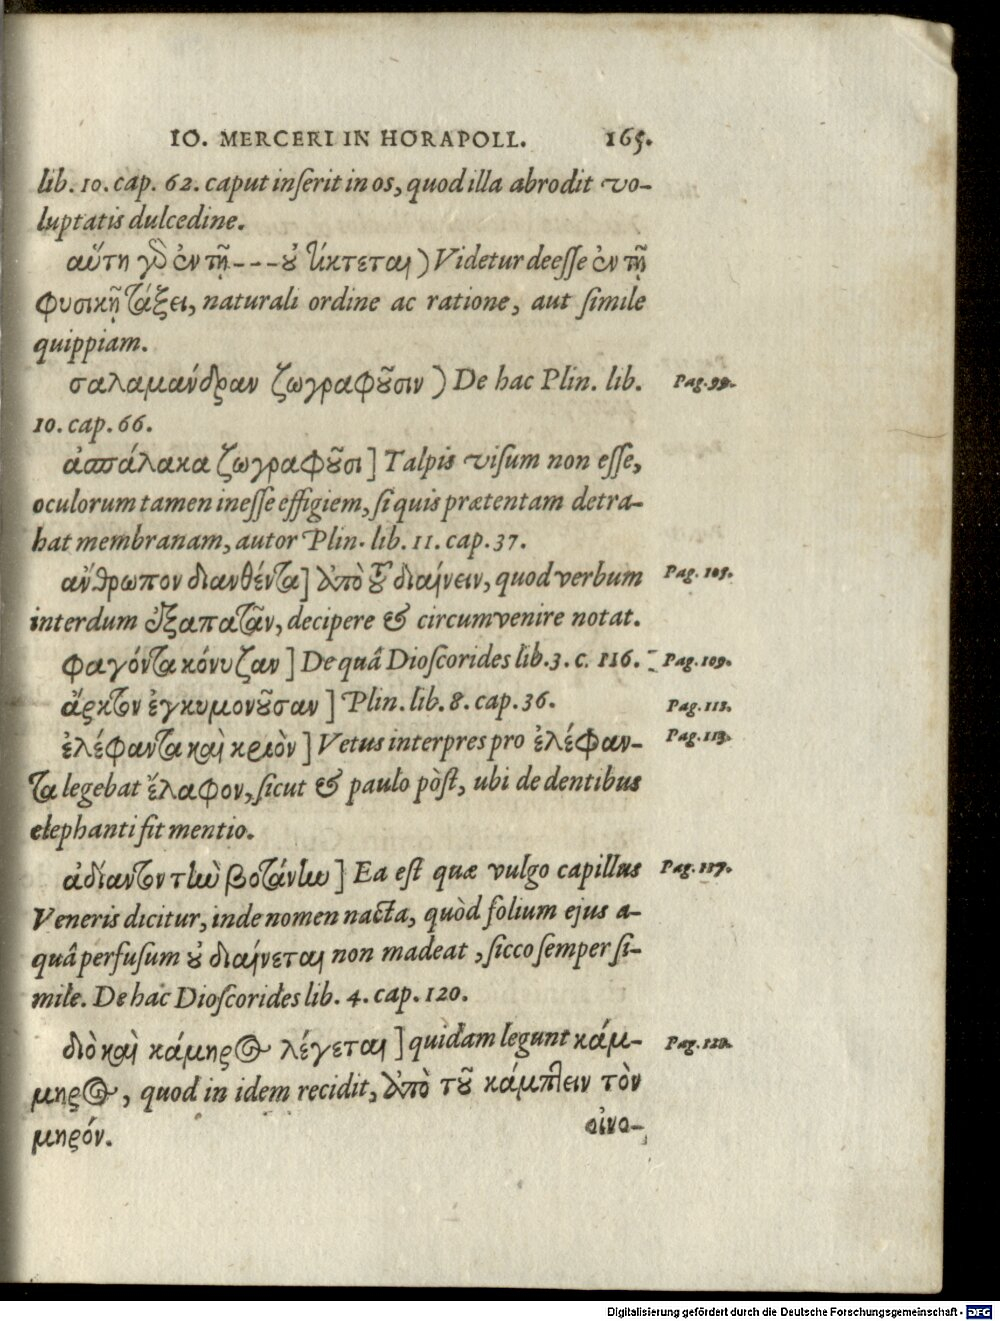 IO. MERCERI IN HORAPOLL. 165.
lib. 10. cap. 62. caput inſerit in os, quod illa abrodit vo-
luptatis dulcedine.
αὕτη γὸ ἐν τῇ---ȣ̓ τίκτεται) Videtur deeſſe ἐν τῇ
φυσικῇ τάξει, naturali ordine ac ratione, aut ſimile
quippiam.
σαλαμάνδραν ζωγραφȣ͂σιν) De hac Plin. lib. Pag. 99.
10. cap. 66.
ἀσπάλακα ζωγραφȣ͂σι] Talpis viſum non eſſe,
oculorum tamen ineſſe effigiem, ſi quis prætentam detra-
hat membranam, autor Plin. lib. 11. cap. 37.
ἄνθρωπον διανθέντα] ἀπὸ τȣ͂ διαίνειν, quod verbum Pag. 105.
interdum ἐξαπατᾶν, decipere & circumvenire notat.
φαγόντα κόνυζαν] De quâ Dioſcorides lib. 3. c. 116. Pag. 109.
ἄρκτον ἐγκυμονȣ͂σαν] Plin. lib. 8. cap. 36. Pag. 112.
ἐλέφαντα καὶ κριὸν] Vetus interpres pro ἐλέφαν- Pag. 113.
τα legebat ἔλαφον, ſicut & paulo pòſt, ubi de dentibus
elephanti fit mentio.
ἀδίαντον τὴν βοτάνην] Ea eſt quæ vulgo capillus Pag. 117.
Veneris dicitur, inde nomen nacta, quòd folium ejus a-
quâ perfuſum ȣ̓ διαίνεται non madeat, ſicco ſemper ſi-
mile. De hac Dioſcorides lib. 4. cap. 120.
διὸ καὶ κάμηρος λέγεται] quidam legunt κάμ- Pag. 120.
μηρος, quod in idem recidit, ἀπὸ τȣ͂ κάμπτειν τὸν
μηρόν.
οἰνο-
Digitalisierung gefördert durch die Deutsche Forschungsgemeinschaft - DFG